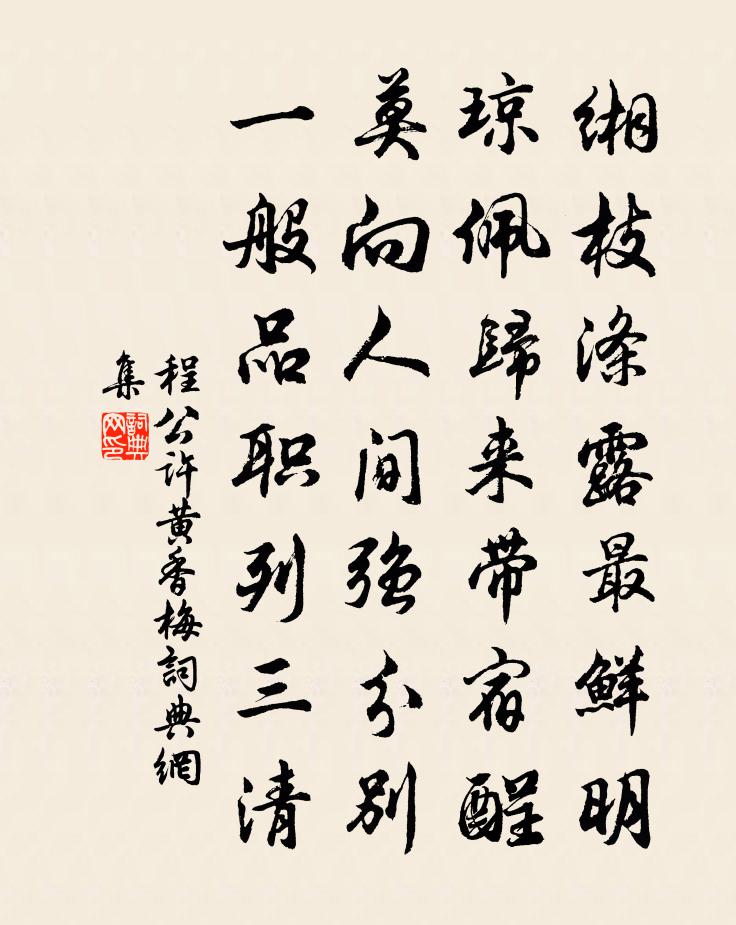 缃枝涤露最鮮明
琼佩歸来带宿醒
莫向人间强分别
一般品职列三清
程公许黄香梅詞典網
集
詞典
网印